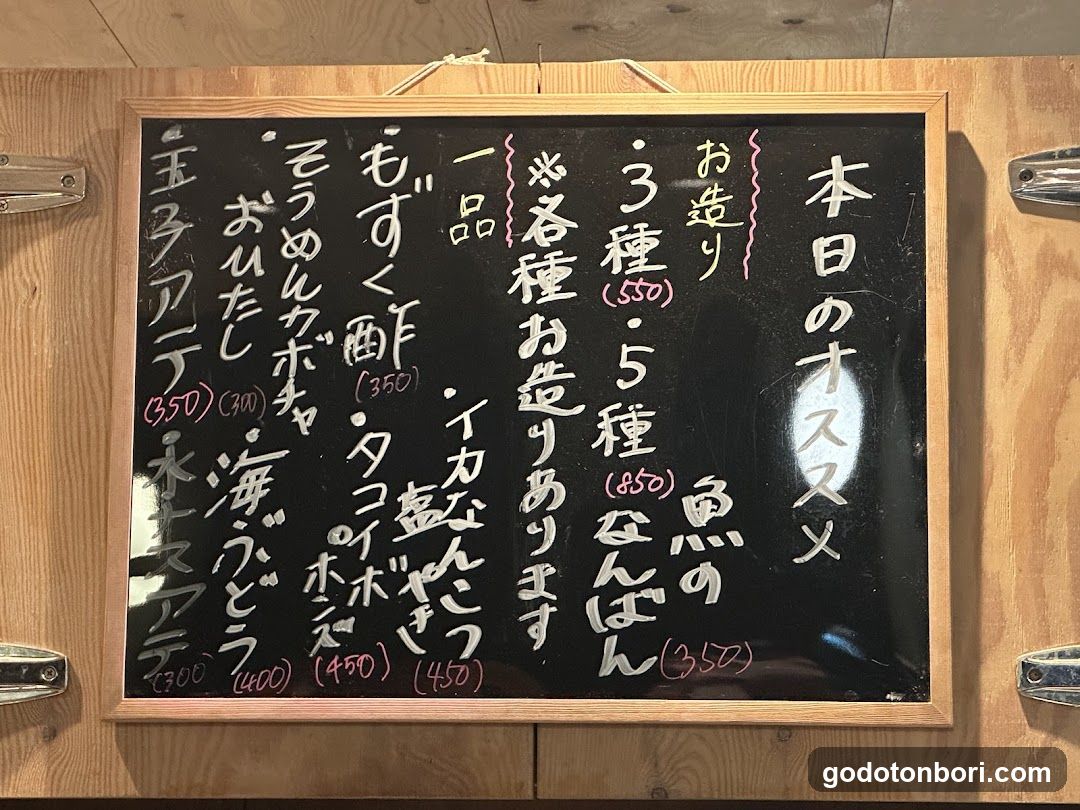 本日のオススメ
お造り
・3種
(550)
・5種
(850)
魚の
なんばん
(350)
※各種お造りあります
一品
・もずく酢
(350)
・イカなんこつ
塩やき
(450)
・タコイボ
ポンズ
(450)
・そうめんカボチャ
おひたし
(300)
・海ぶどう
(400)
・玉子アテ
(350)
・水ナスアテ
(300)
godotonbori.com